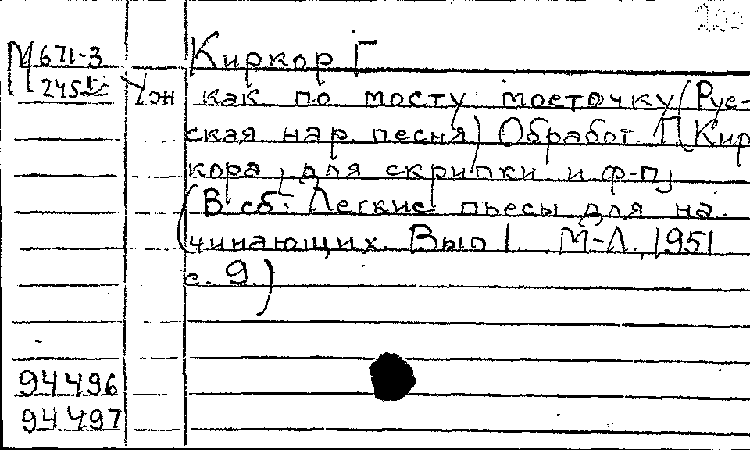 М 671-3
245
Киркор Г
как по мосту мосточку (Рус-
ская нар песня) Обработ Г. Кир
кора, для скрипки и ф-п,
(В сб: Легкие пьесы для на-
чинающих. Вып 1. М-Л, 1951
с. 9)
94496
94497